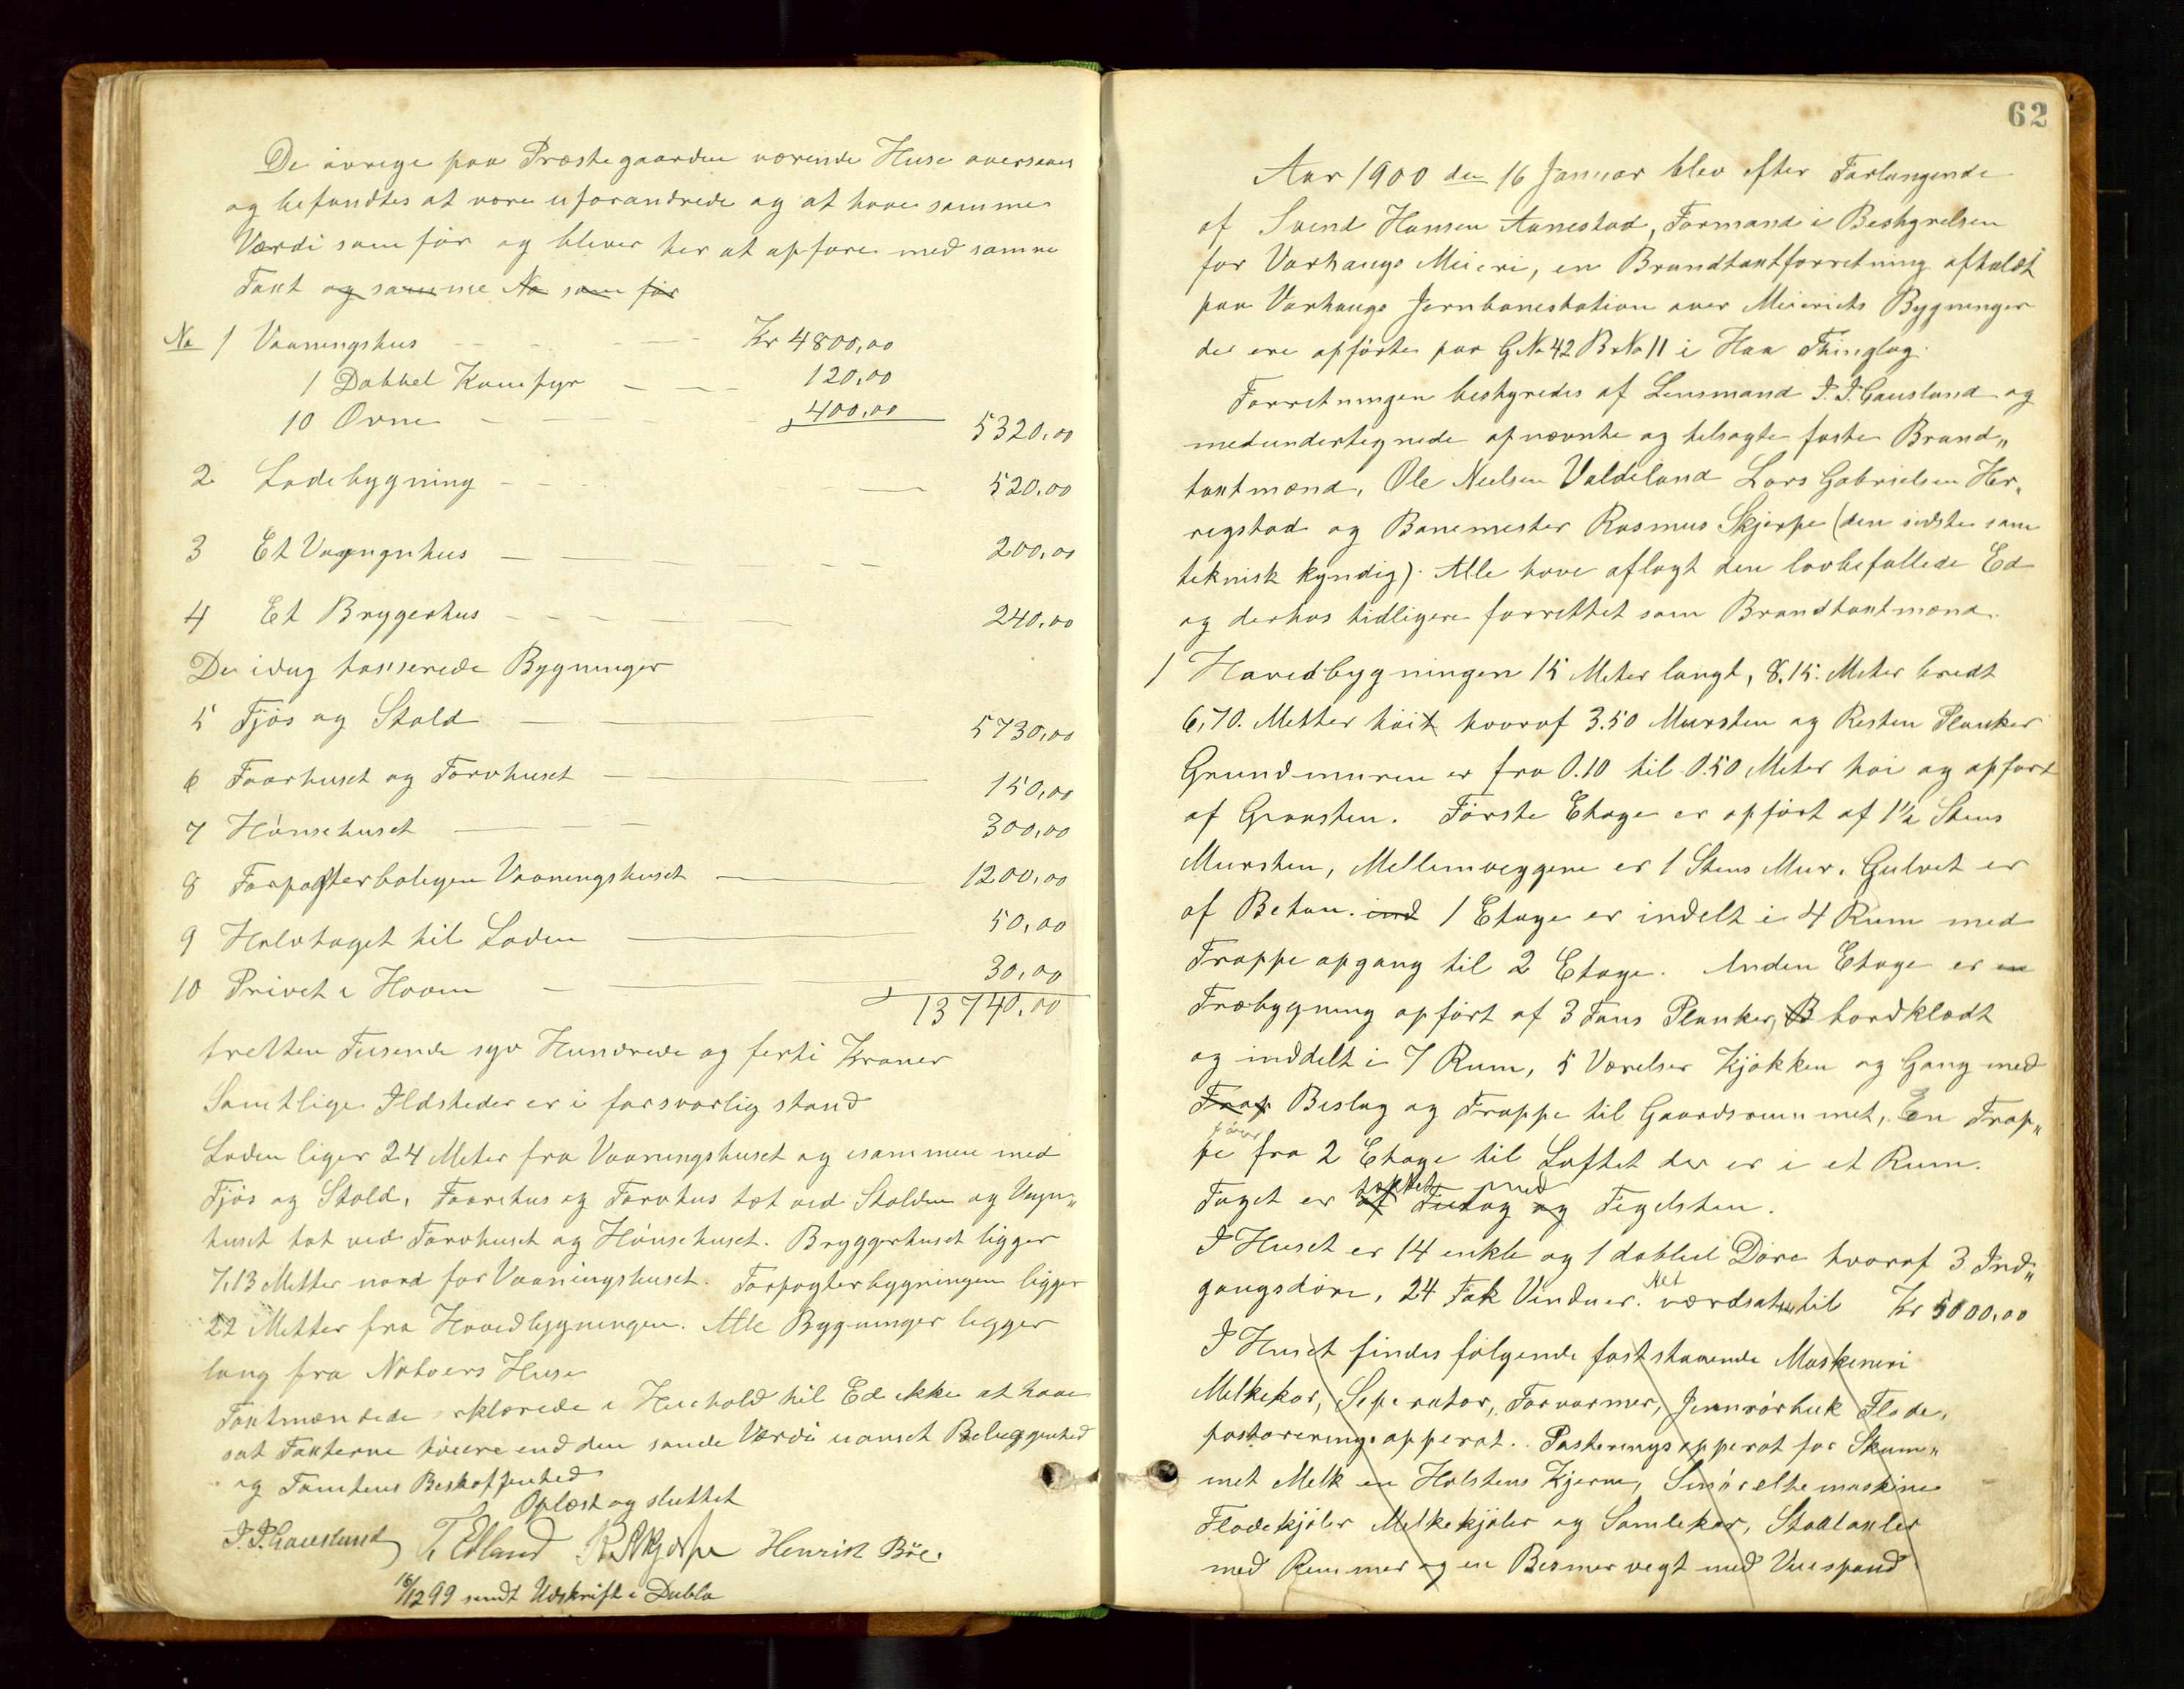 De øvrige paa Præstegaarden værende Huse oversaaes
og befandtes at være uforandrede og at have samme
Værdi som før og bliver her at opføre med samme
Taxt og samme No som før
No 1 Vaaningshus Kr 4800,00
1 Dobbel Komfyr 120,00
10 Ovne 400,00 5320,00
2 Ladebygning 520,00
3 Et Vognhus 200,00
4 Et Bryggerhus 240,00
De idag taxserede Bygninger
5 Fjøs og Stald 5730,00
6 Faarhuset og Torvhuset 150,00
7 Hønsehuset 300,00
8 Forpagterboligen Vaaningshuset 1200,00
9 Halvtaget til Laden 50,00
10 Privet i Haven 30,00
13740,00
tretten Tusende syv Hundrede og førti Kroner
Samtlige Ildsteder er i forsvarlig stand
Laden liger 24 Meter fra Vaaningshuset og isammen med
Fjøs og Stald, Faarehus og Torvhus tæt ved Stalden og Vogn„
huset tæt ved Torvhuset og Hønsehuset. Bryggerhuset ligger
7,13 Metter nord for Vaaningshuset. Forpagterbygningen ligger
22 Metter fra Hovedbygningen. Alle Bygninger ligger
lang fra Naboers Huse
Taxtmændede erklærede i Henhold til Ed ikke at have
sat Taxterne høiere end den sande Værdi uanset Beliggenhed
og Tomtens Beskaffenhed
Oplæst og sluttet
J. J. Gausland T. Edland R Skjerpe Henrik Böe.
16/12 99 sendt Udskrift i Dublo
62
Aar 1900 den 16 Januar blev efter Forlangende
af Svend Hansen Aanestad, Formand i Bestyrelsen
for Varhaugs Meieri, en Brandtaxtforretning afholdt
paa Varhaugs Jernbanestation over Meieriets Bygninger
der ere opførte paa GNo 42 BrNo 11 i Haa Thinglag.
Forretningen bestyredes af Lensmand J. J. Gausland og
medundertegnede opnævnte og tilsagte faste Brand„
taxtmænd, Ole Nielsen Valdeland Lars Gabrielsen Her„
regstad og Banemester Rasmus Skjerpe (den sidste som
teknisk kyndig). Alle have aflagt den lovbefallede Ed
og derhos tidligere forrettet som Brandtaxtmænd.
1 Hovedbygningen 15 Meter langt, 8,15. Meter bredt
6,70. Metter høit hvoraf 3.50 Mursten og Resten Planker
Grundmuren er fra 0.10 til 0.50 Meter høi og opført
af Graasten. Første Etage er opført af 1½ Stens
Mursten, Mellemveggene er 1 Stens Mur. Gulvet er
af Beton. ind 1 Etage er indelt i 4 Rum med
Trappeopgang til 2 Etage. Anden Etage er en
Træbygning opført af 3 Toms Planker, B bordklædt
og inddelt i 7 Rum, 5 Værelser Kjøkken og Gang med
Trap Beslag og Trappe til Gaardsrummet, En Trap„
pe fører fra 2 Etage til Loftet der er i et Rum.
Taget er af tækket Tretag og med Teglsten.
I Huset er 14 enkle og 1 dobbel Døre hvoraf 3 Ind„
gangsdøre, 24 Fak Vinduer. Alt værdsat til Kr 5000,00
I Huset findes følgende faststaaende Maskineri
Melkekar, Seperator, Forvarmer, Fløde„
apperat. apperat for Skum„
met Melk en Holstens Kjerne, Smøreltemaskine
Flødekjøler Melkekjøler og Samlekar, Staalaxler
med Remmer og en Bismervegt med